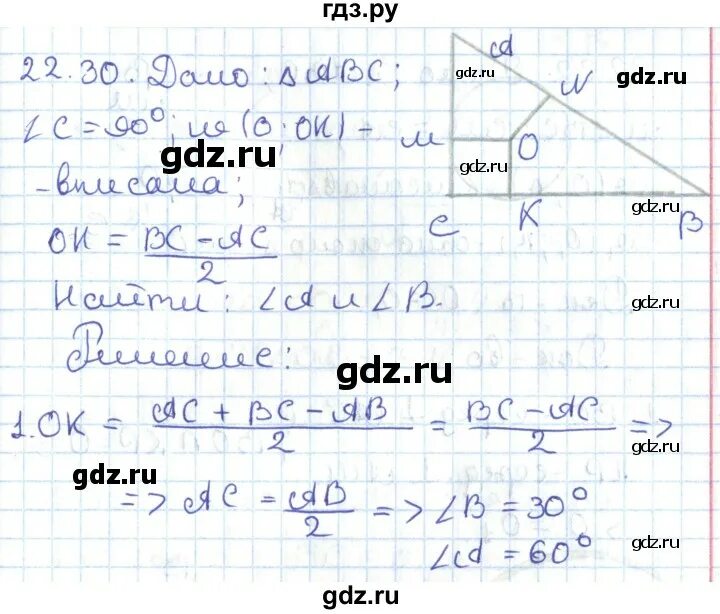 гдз.ру
22.30. Дано: ΔABC;
∠C = 90°; ω (O; OK) –
– вписана;
OK = (BC – AC)/2
Найти: ∠A и ∠B.
Решение:
1. OK = (AC + BC – AB)/2 = (BC – AC)/2 =>
=> AC = AB/2 => ∠B = 30°
∠A = 60°
A
N
M
O
C
K
B
gdz.ru
gdz.ru
gdz.ru
gdz.ru
gdz.ru
gdz.ru
gdz.ru
gdz.ru
gdz.ru
gdz.ru
gdz.ru
gdz.ru